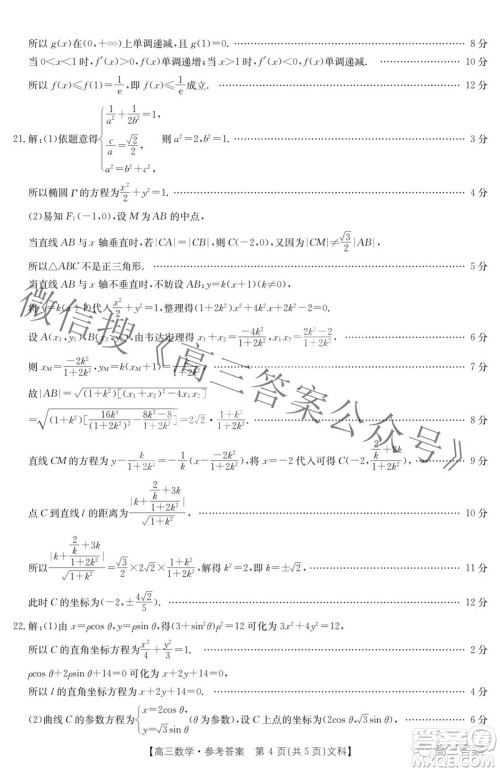 所以 g(x)在(0,+∞)上单调递减,且 g(1)=0. 8 分
当 0<x<1 时,f′(x)>0,f(x)单调递增;当 x>1 时,f′(x)<0,f(x)单调递减. 10 分
所以 f(x)≤f(1)=1/e,即 f(x)≤1/e成立. 12 分
21.解:(1)依题意得{1/a²+1/2b²=1, c/a=√2/2, a²=b²+c², 则 a²=2,b²=1. 3 分
所以椭圆 Γ 的方程为x²/2+y²=1. 4 分
(2)易知 F₁(-1,0),设 M 为 AB 的中点,
当直线 AB 与 x 轴垂直时,若|CA|=|CB|,则 C(-2,0),又因为|CM|≠√3/2|AB|,
所以△ABC 不是正三角形. 5 分
当直线 AB 与 x 轴不垂直时,不妨设 AB: y=k(x+1)(k≠0),
将 y=k(x+1)代入x²/2+y²=1,整理得(1+2k²)x²+4k²x+2k²-2=0.
设 A(x₁,y₁),B(x₂,y₂),由韦达定理得 x₁+x₂=-4k²/1+2k²,x₁x₂=2k²-2/1+2k². 6 分
则 x_M=-2k²/1+2k²,y_M=k(x_M+1)=k/1+2k². 7 分
故|AB|=√(1+k²)[(x₁+x₂)²-4x₁x₂]
=√(1+k²)[16k⁴/(1+2k²)²-8k²-8/1+2k²]=2√2·1+k²/1+2k². 8 分
直线 CM 的方程为 y-k/1+2k²=-1/k(x+2k²/1+2k²),将 x=-2 代入可得 C(-2,2/k+3k/1+2k²). 9 分
点 C 到直线 l 的距离为|k+2/k+3k/1+2k²|/√1+k², 10 分
所以|k+2/k+3k/1+2k²|/√1+k²=√3/2×2√2×1+k²/1+2k²,解得 k²=2,即 k=±√2, 11 分
此时 C 的坐标为(-2,±4√2/5). 12 分
22.解:(1)由 x=ρcos θ,y=ρsin θ,得(3+sin²θ)ρ²=12 可化为 3x²+4y²=12,
所以 C 的直角坐标方程为x²/4+y²/3=1. 2 分
ρcos θ+2ρsin θ+14=0 可化为 x+2y+14=0.
所以 l 的直角坐标方程为 x+2y+14=0. 4 分
(2)曲线 C 的参数方程为{x=2cos θ, y=√3sin θ(θ为参数),设 P(2cos θ,√3sin θ),
【高三数学·参考答案 第 4 页(共 5 页)文科】
微信搜《高三答案公众号》